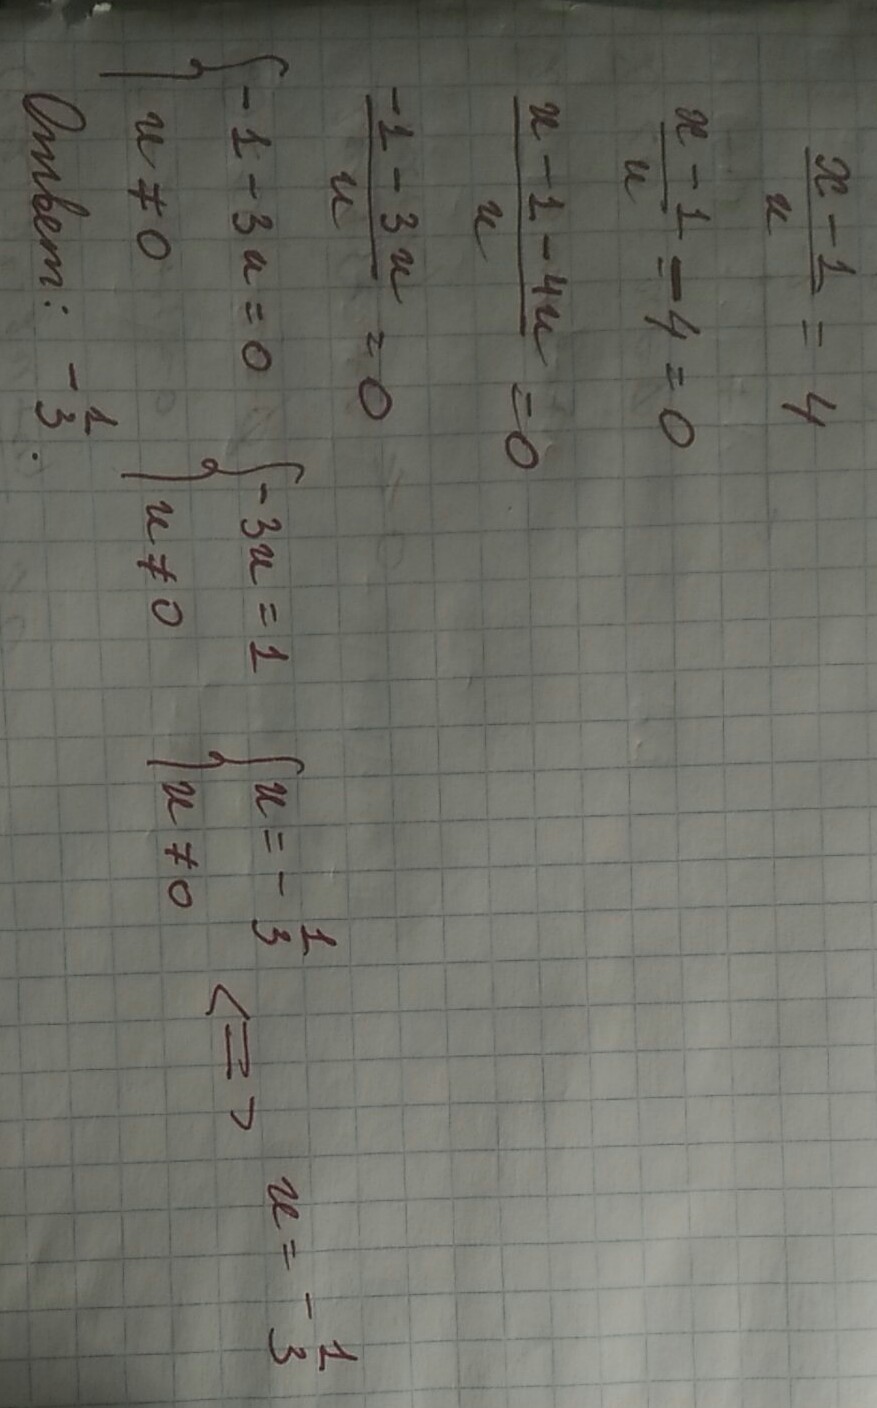 (x - 1)/x = 4
(x - 1)/x - 4 = 0
(x - 1 - 4x)/x = 0
(-1 - 3x)/x = 0
{ -1 - 3x = 0 { -3x = 1 { x = - 1/3 <=> x = - 1/3
{ x ≠ 0 { x ≠ 0 { x ≠ 0
Ответ: - 1/3.